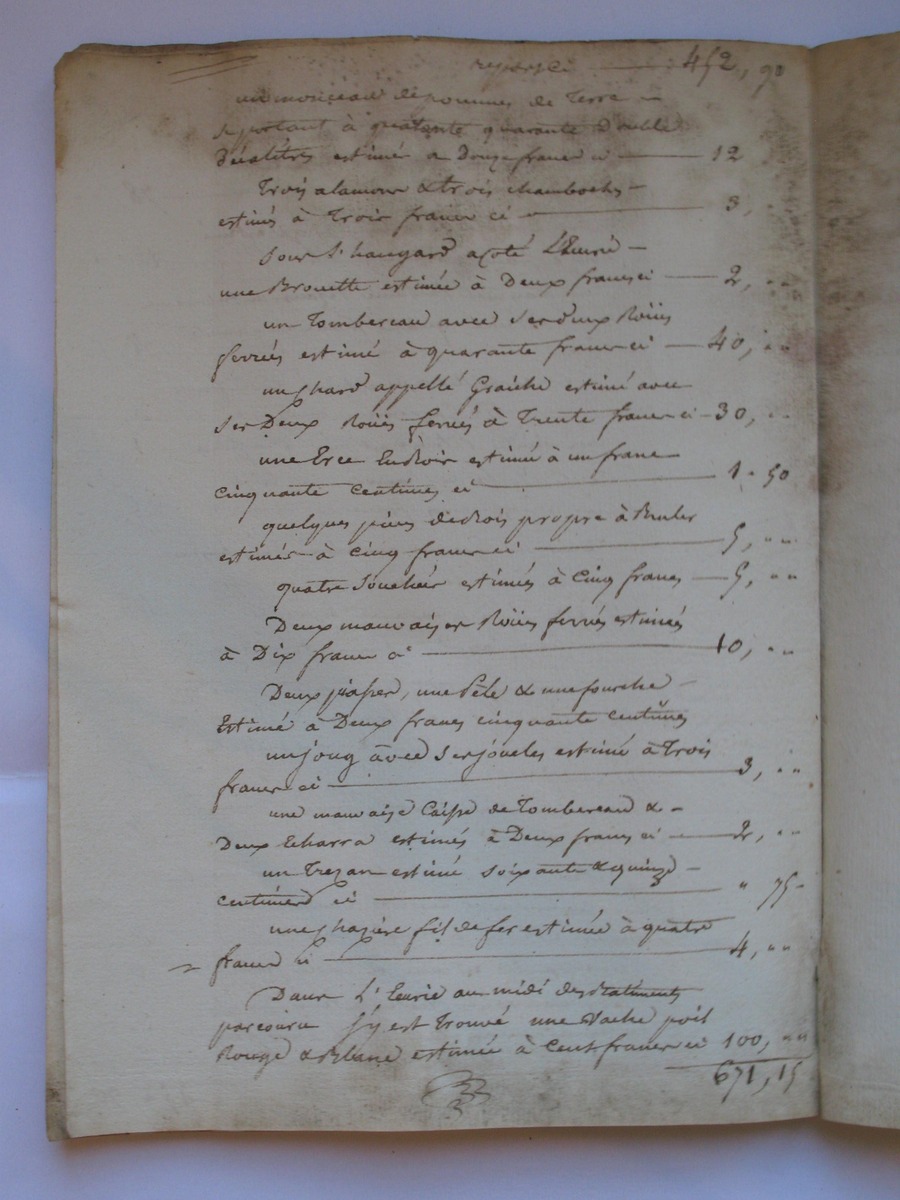 report ci 452, 90
un monceau de pommes de Terre
se portant à quarante Double
Décalitres estimé a Douze franc ci 12
Trois alamour & trois
estimés à Trois franc ci 3,
Sous l'hangard a coté L'Eurie
une Brouette estimée à Deux francs ci 2, "
un Tombereau avec ses deux Roües
ferrées estimé à quarante franc ci 40, "
un Chard appellé Graiche estimé avec
ses Deux Roües ferrées à Trente franc ci 30, "
une Erce En Bois estimé à un franc
cinquante centimes ci 1 " 50
quelques pieces de Bois propre à Bruler
estimés à cinq franc ci 5, "
quatre estimés à Cinq francs 5, "
Deux mauvaises Roües ferrées estimées
à Dix franc ci 10, "
Deux, une Pèle & une fourche
Estimé à Deux francs cinquante centimes
un joug avec ses jougles estimé à Trois
franc ci 3, "
une mauvaise Caisse de Tombereau &
Deux Echarra estimés à Deux francs ci 2, "
un Trezan estimé soixante & quinze
centimes ci " 75
une Chazière fil de fer estimée à quatre
franc ci 4, "
Dans L'Eurie au midi des Batiments
parcouru s'y est Trouvé une Vache poil
Rouge & Blanc estimée à Cent franc ci 100, "
671, 15